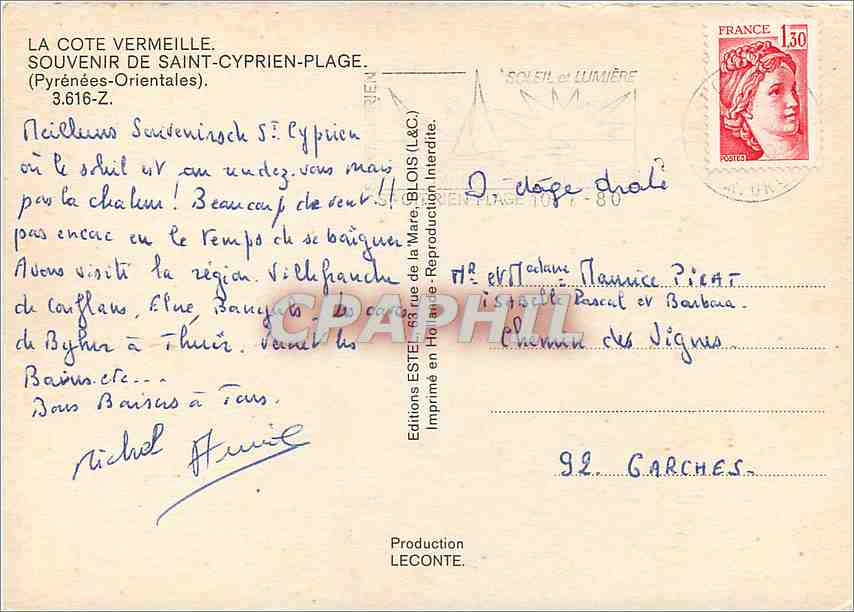 LA COTE VERMEILLE.
SOUVENIR DE SAINT-CYPRIEN-PLAGE.
(Pyrénées-Orientales).
3.616-Z.
Meilleurs Souvenirs de St Cyprien
où le soleil est au rendez-vous mais
pas la chaleur! Beaucoup de vent!!
pas encore eu le temps de se baigner
Avons visité la région. Villefranche
de Conflans, Elne, Banyuls, les caves
de Byhrr à Thuir. Vernet les
Bains. etc...
Bons Baisers à Tous.
Michel
Editions ESTEL, 63 rue de la Mare, BLOIS (L&C.)
Imprimé en Hollande - Reproduction Interdite.
FRANCE 1,30
POSTES
SOLEIL et LUMIÈRE
ST CYPRIEN PLAGE
80
étage droite
Mr et Madame Maurice PICAT
ISABELLE Pascal et Barbara
Chemin des Vignes
92. GARCHES-
CPAPHIL
Production
LECONTE.